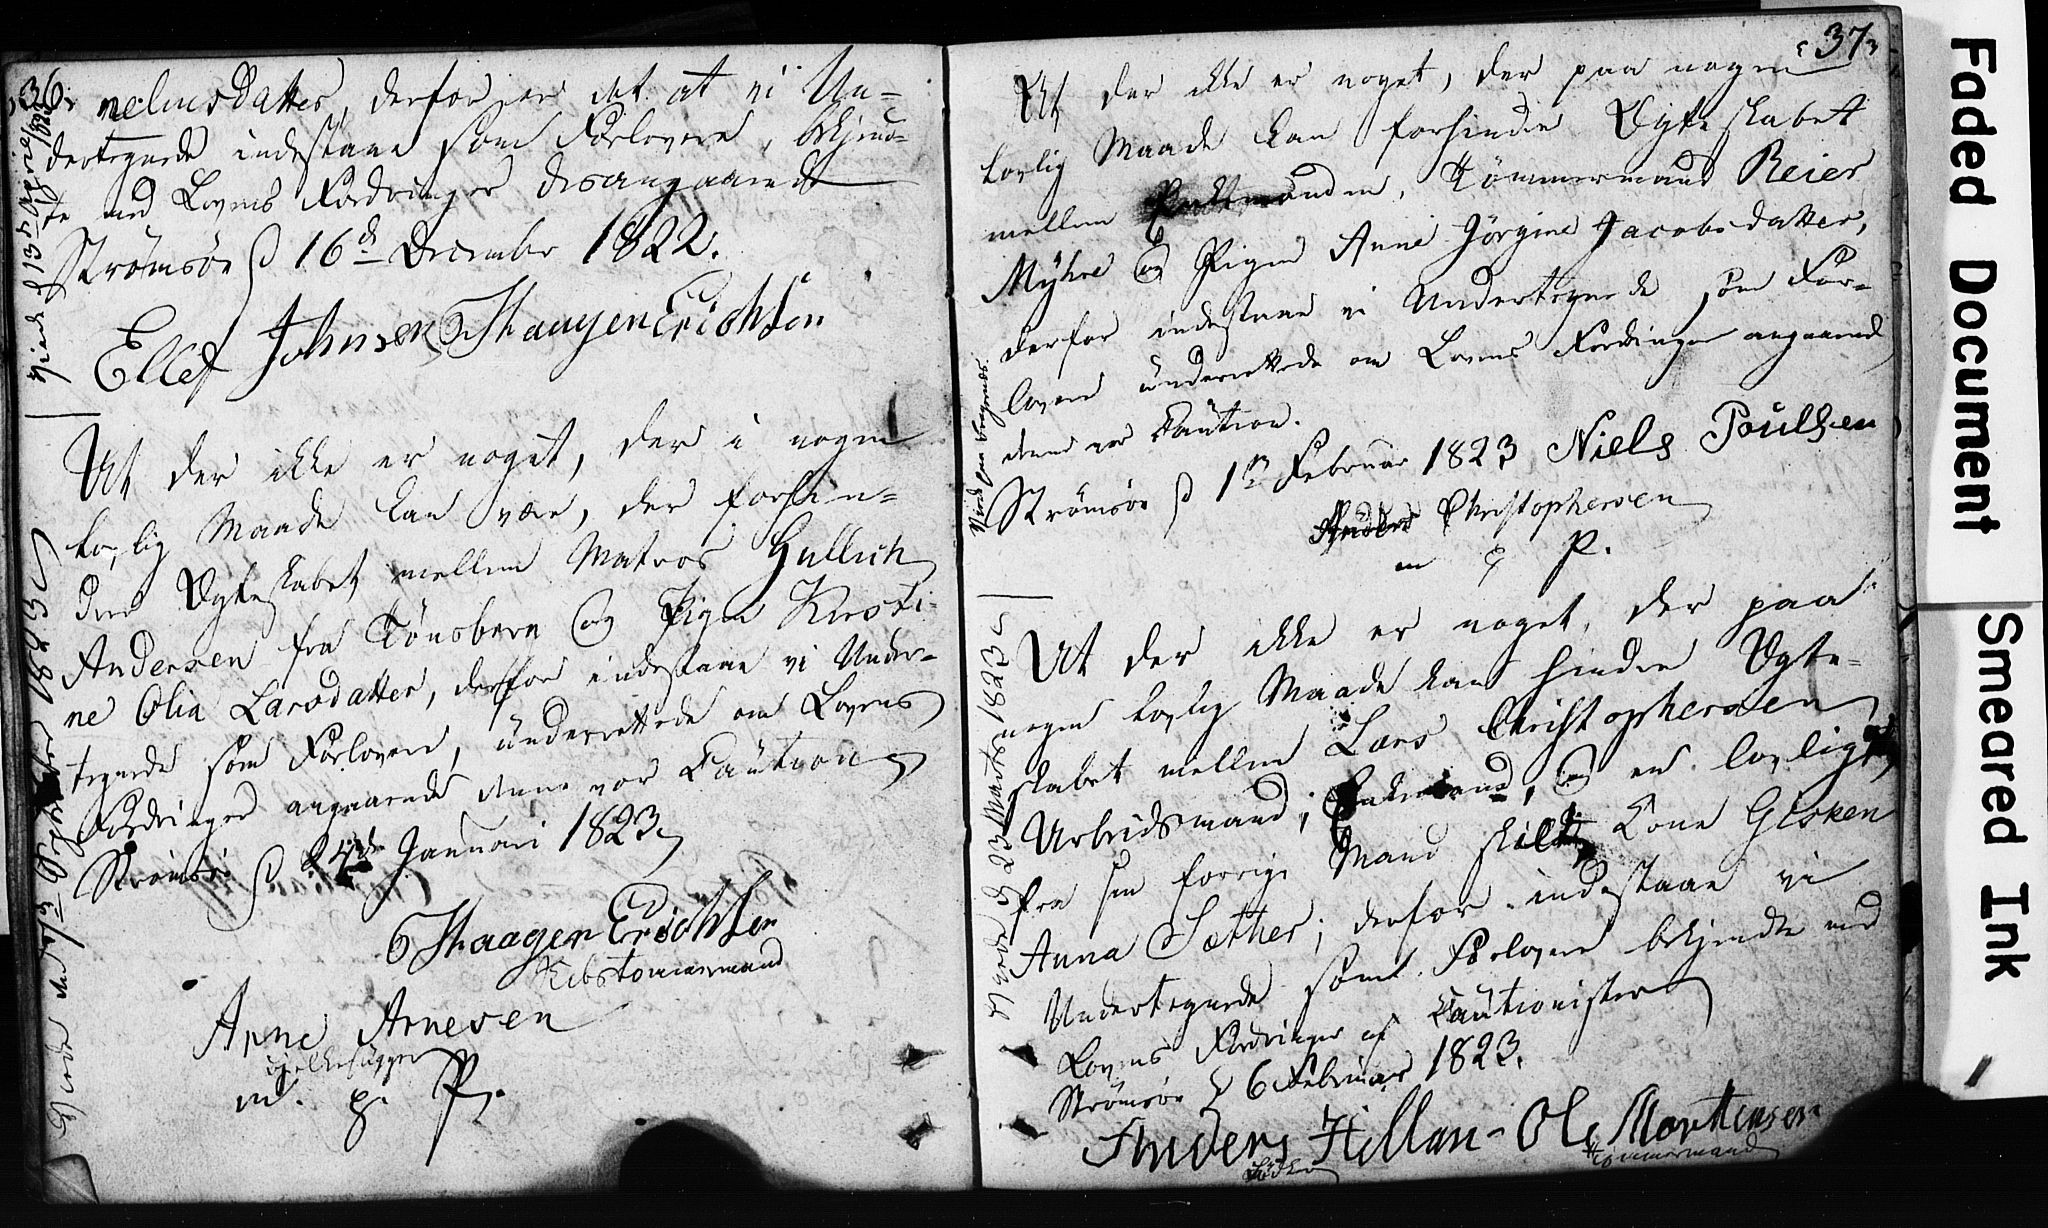 36.
nelusdatter, derfor er det at vi Un=
dertegnede indestaae som Forlovere, bekjend-
te med Lovens Fordringer desangaaende
Strømsøe d 16de December 1822.
Ellef Johnsen Haagen Erichsen
Viede d 13de April 1823
At der ikke er noget, der i nogen
lovlig Maade kan være, der forhin=
drer Ægteskabet mellem Matros Gullich
Andersen fra Tönsberg og Pigen Kirsti-
ne Olia Larsdatter, derfor indestaae vi Under-
tegnede som Forlovere, underrettede om Lovens
Fordringer angaaende denne vor Caution
Strømsøe d 24de Januari 1823
Haagen Erichsen
Arne Arnesen
Bjelkehugger
m. p. P.
1823
37
At der ikke er noget, der paa nogen
lovlig Maade kan forhindre Ægteskabet
mellem Enkemanden, Tömmermand Reier
Myhre og Pigen Anne Jörgine Jacobsdatter,
derfor indestaae vi Undertegnede som For-
lovere underrettede om Lovens Fordringer angaaende
denne vor Caution.
Strømsøe d 1ste Februar 1823 Niels Poulsen
Anders Christophersen
m p P.
Viede paa Bragernes
At der ikke er noget, der paa
nogen lovlig Maade kan hindre Ægte-
skabet mellem Lars Christophersen
Arbeidsmand, Enkemand, og en lovlig
fra sin forrige Mand skildt Kone Gisken
Anna Sæther; derfor indestaae vi
Undertegnede som Forlovere bekjendte med
Lovens Fordringer af Cautionister
Strømsøe d 6 Februar 1823.
Anders Killan - Ole Morttensen
Tömmermand
Viede d 23 Marts 1823
Faded Document
Smeared Ink